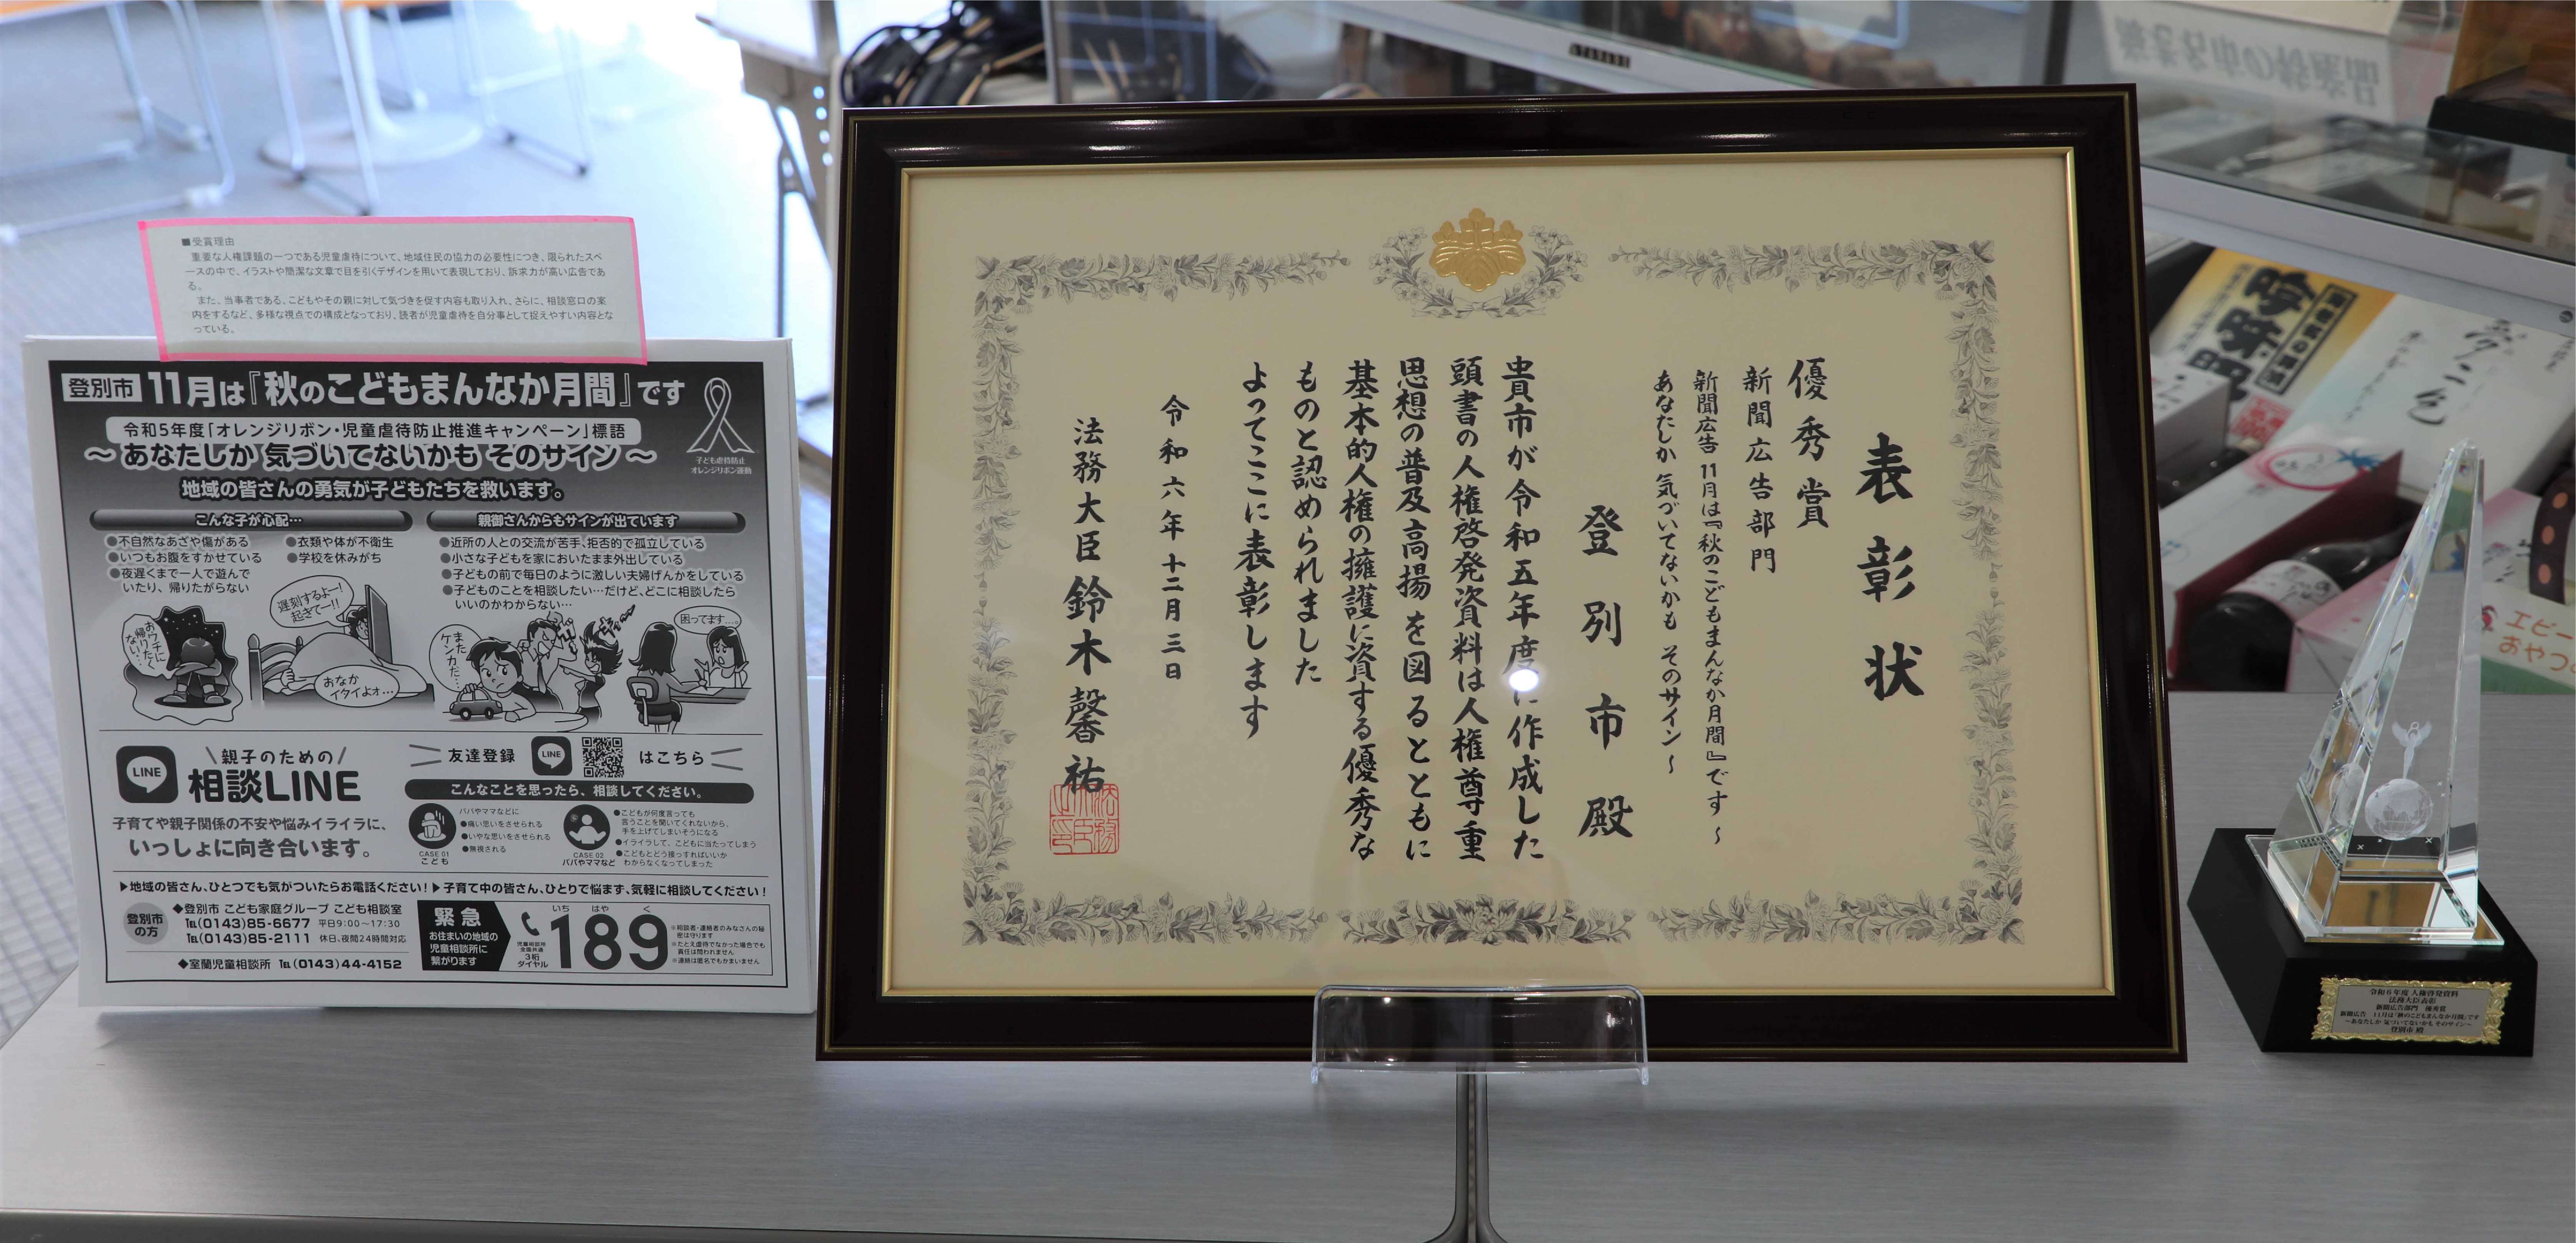 ■受賞理由
重要な人権課題の一つである児童虐待について、地域住民の協力の必要性につき、限られたスペ
ースの中で、イラストや簡潔な文章で目を引くデザインを用いて表現しており、訴求力が高い広告であ
る。
また、当事者である、こどもやその親に対して気づきを促す内容も取り入れ、さらに、相談窓口の案
内をするなど、多様な視点での構成となっており、読者が児童虐待を自分事として捉えやすい内容とな
っている。
登別市 11月は『秋のこどもまんなか月間』です
令和5年度「オレンジリボン・児童虐待防止推進キャンペーン」標語
～ あなたしか 気づいてないかも そのサイン ～
子ども虐待防止
オレンジリボン運動
地域の皆さんの勇気が子どもたちを救います。
こんな子が心配…
●不自然なあざや傷がある
●いつもお腹をすかせている
●夜遅くまで一人で遊んで
いたり、帰りたがらない
●衣類や体が不衛生
●学校を休みがち
親御さんからもサインが出ています
●近所の人との交流が苦手、拒否的で孤立している
●小さな子どもを家においたまま外出している
●子どもの前で毎日のように激しい夫婦げんかをしている
●子どものことを相談したい…だけど、どこに相談したら
いいのかわからない…
おウチに
帰りたく
ない…
遅刻するよー!
起きてー!!
おなか
イタイよォ…
また
ケンカだ…
困ってます…。
LINE
親子のための
相談LINE
子育てや親子関係の不安や悩みイライラに、
いっしょに向き合います。
友達登録 LINE はこちら
こんなことを思ったら、相談してください。
CASE 01
こども
パパやママなどに
●痛い思いをさせられる
●いやな思いをさせられる
●無視される
CASE 02
パパやママなど
●こどもが何度言っても
言うことを聞いてくれないから、
手を上げてしまいそうになる
●イライラして、こどもに当たってしまう
●こどもとどう接すればいいか
わからなくなってしまった
▶地域の皆さん、ひとつでも気がついたらお電話ください!▶子育て中の皆さん、ひとりで悩まず、気軽に相談してください!
登別市
の方
◆登別市 こども家庭グループ こども相談室
TEL(0143)85-6677 平日9:00～17:30
TEL(0143)85-2111 休日、夜間24時間対応
◆室蘭児童相談所 TEL(0143)44-4152
緊急
お住まいの地域の
児童相談所に
繋がります
児童相談所
全国共通
3桁
ダイヤル
いち はや く
189
※相談者・連絡者のみなさんの秘
密は守ります
※たとえ虐待でなかった場合でも
責任は問われません
※連絡は匿名でもかまいません
表彰状
優秀賞
新聞広告部門
新聞広告 11月は『秋のこどもまんなか月間』です ～
あなたしか 気づいてないかも そのサイン～
登別市殿
貴市が令和五年度に作成した
頭書の人権啓発資料は人権尊重
思想の普及高揚を図るとともに
基本的人権の擁護に資する優秀な
ものと認められました
よってここに表彰します
令和六年十二月三日
法務大臣 鈴木馨祐
令和6年度 人権啓発資料
法務大臣表彰
新聞広告部門 優秀賞
新聞広告 11月は『秋のこどもまんなか月間』です
～あなたしか 気づいてないかも そのサイン～
登別市 殿
エビー
おやつ